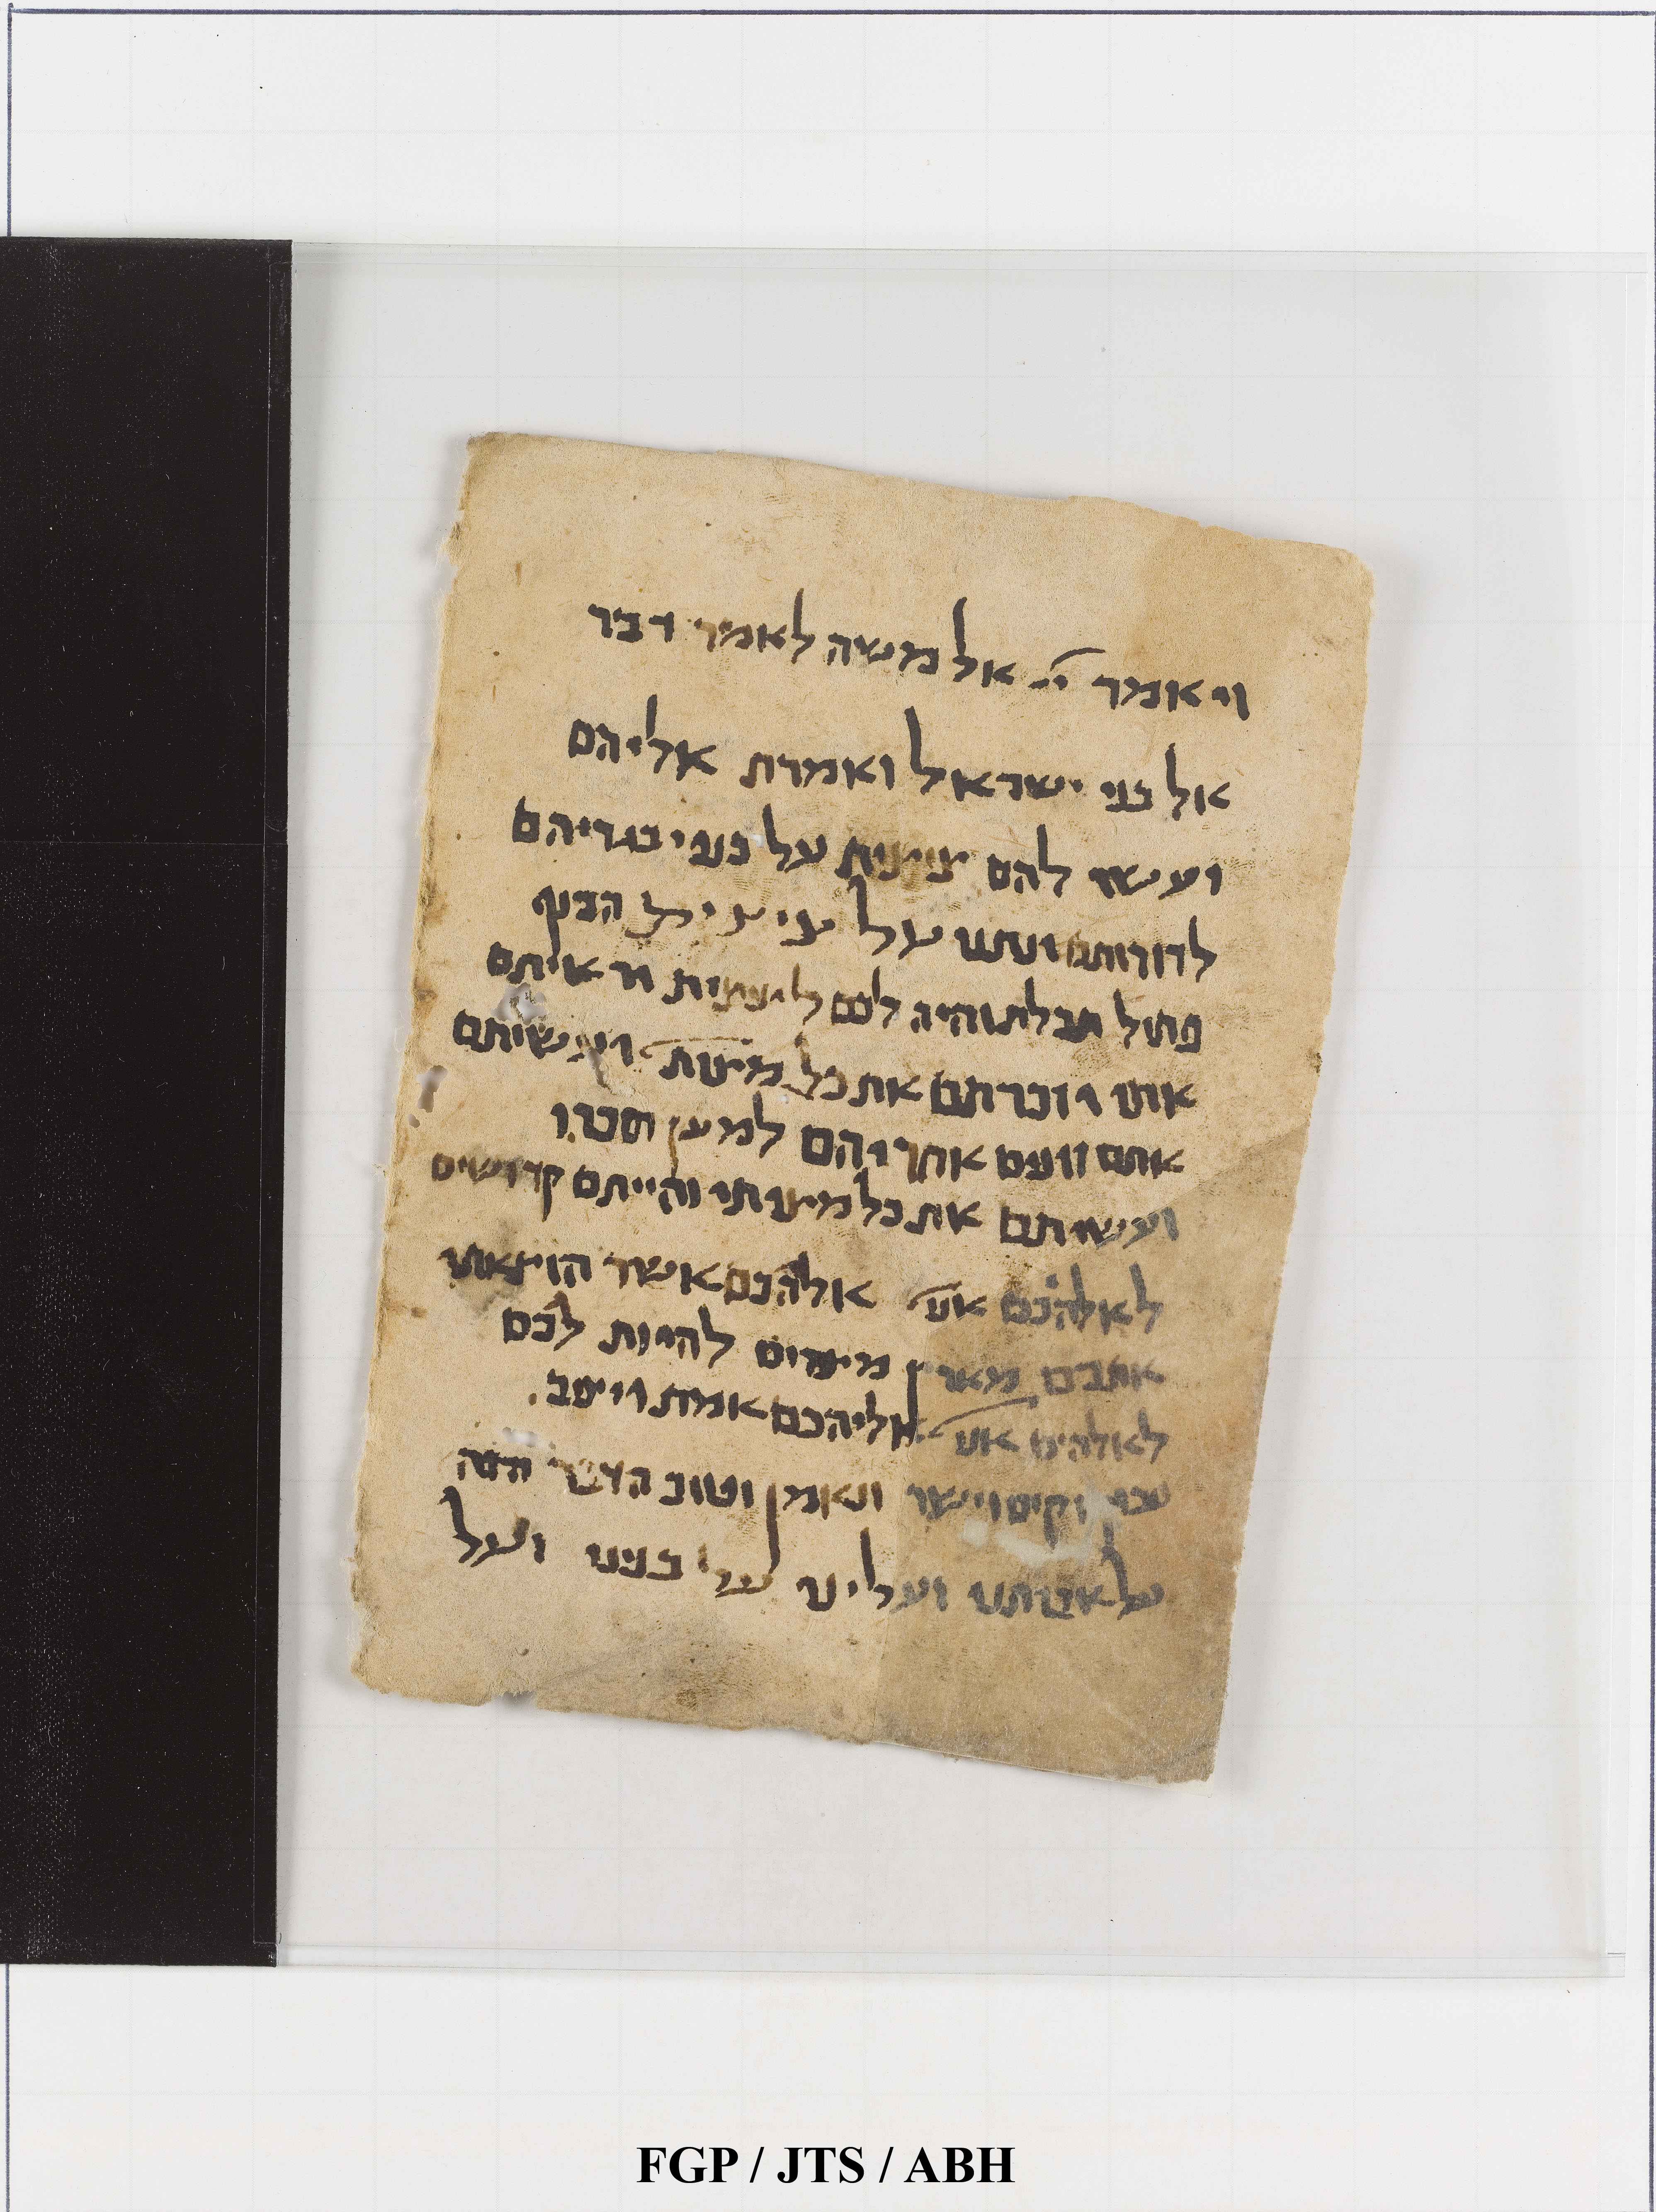 ויאמר יי אל משה לאמר דבר
אל בני ישראל ואמרת אליהם
ועשו להם ציצית על כנפי בגדיהם
לדורותם ונתנו על ציצית הכנף
פתיל תכלת והיה לכם לציצית וראיתם
אותו וזכרתם את כל מצות יי ועשיתם
אתם זונים אחריהם למען תזכרו
ועשיתם את כל מיצותי והייתם קדושים
לאלהכם אני יי אלהכם אשר הוצאתי
אתכם מארץ מיצרים להיות לכם
לאלהים אני יי אליהכם אמת ויציב
ונאמן וטוב הדבר הזה
על אבותנו ועלינו על בנינו ועל
FGP / JTS / ABH